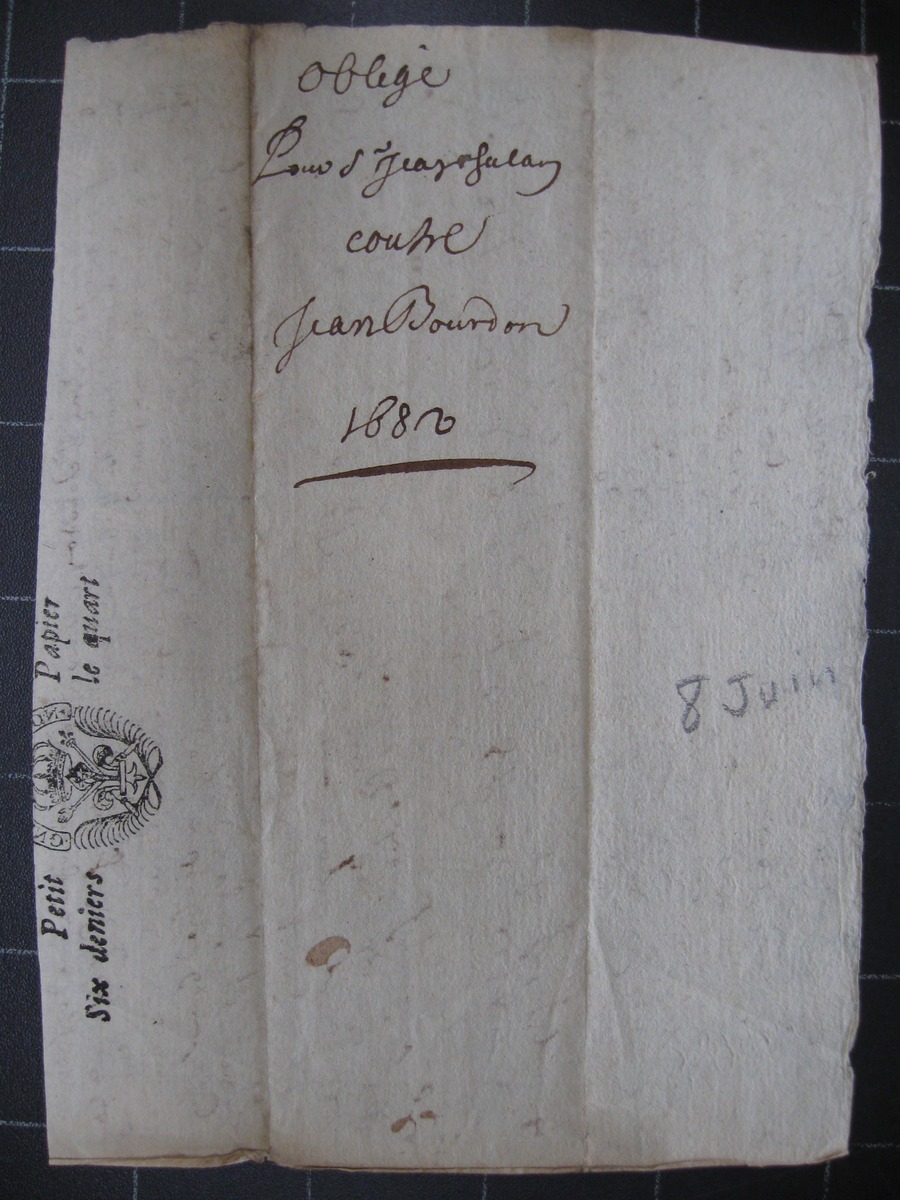 Oblige
Pour Sr Jean
contre
Jean Bourdon
1682
8 Juin
Petit Papier
Six deniers le quart